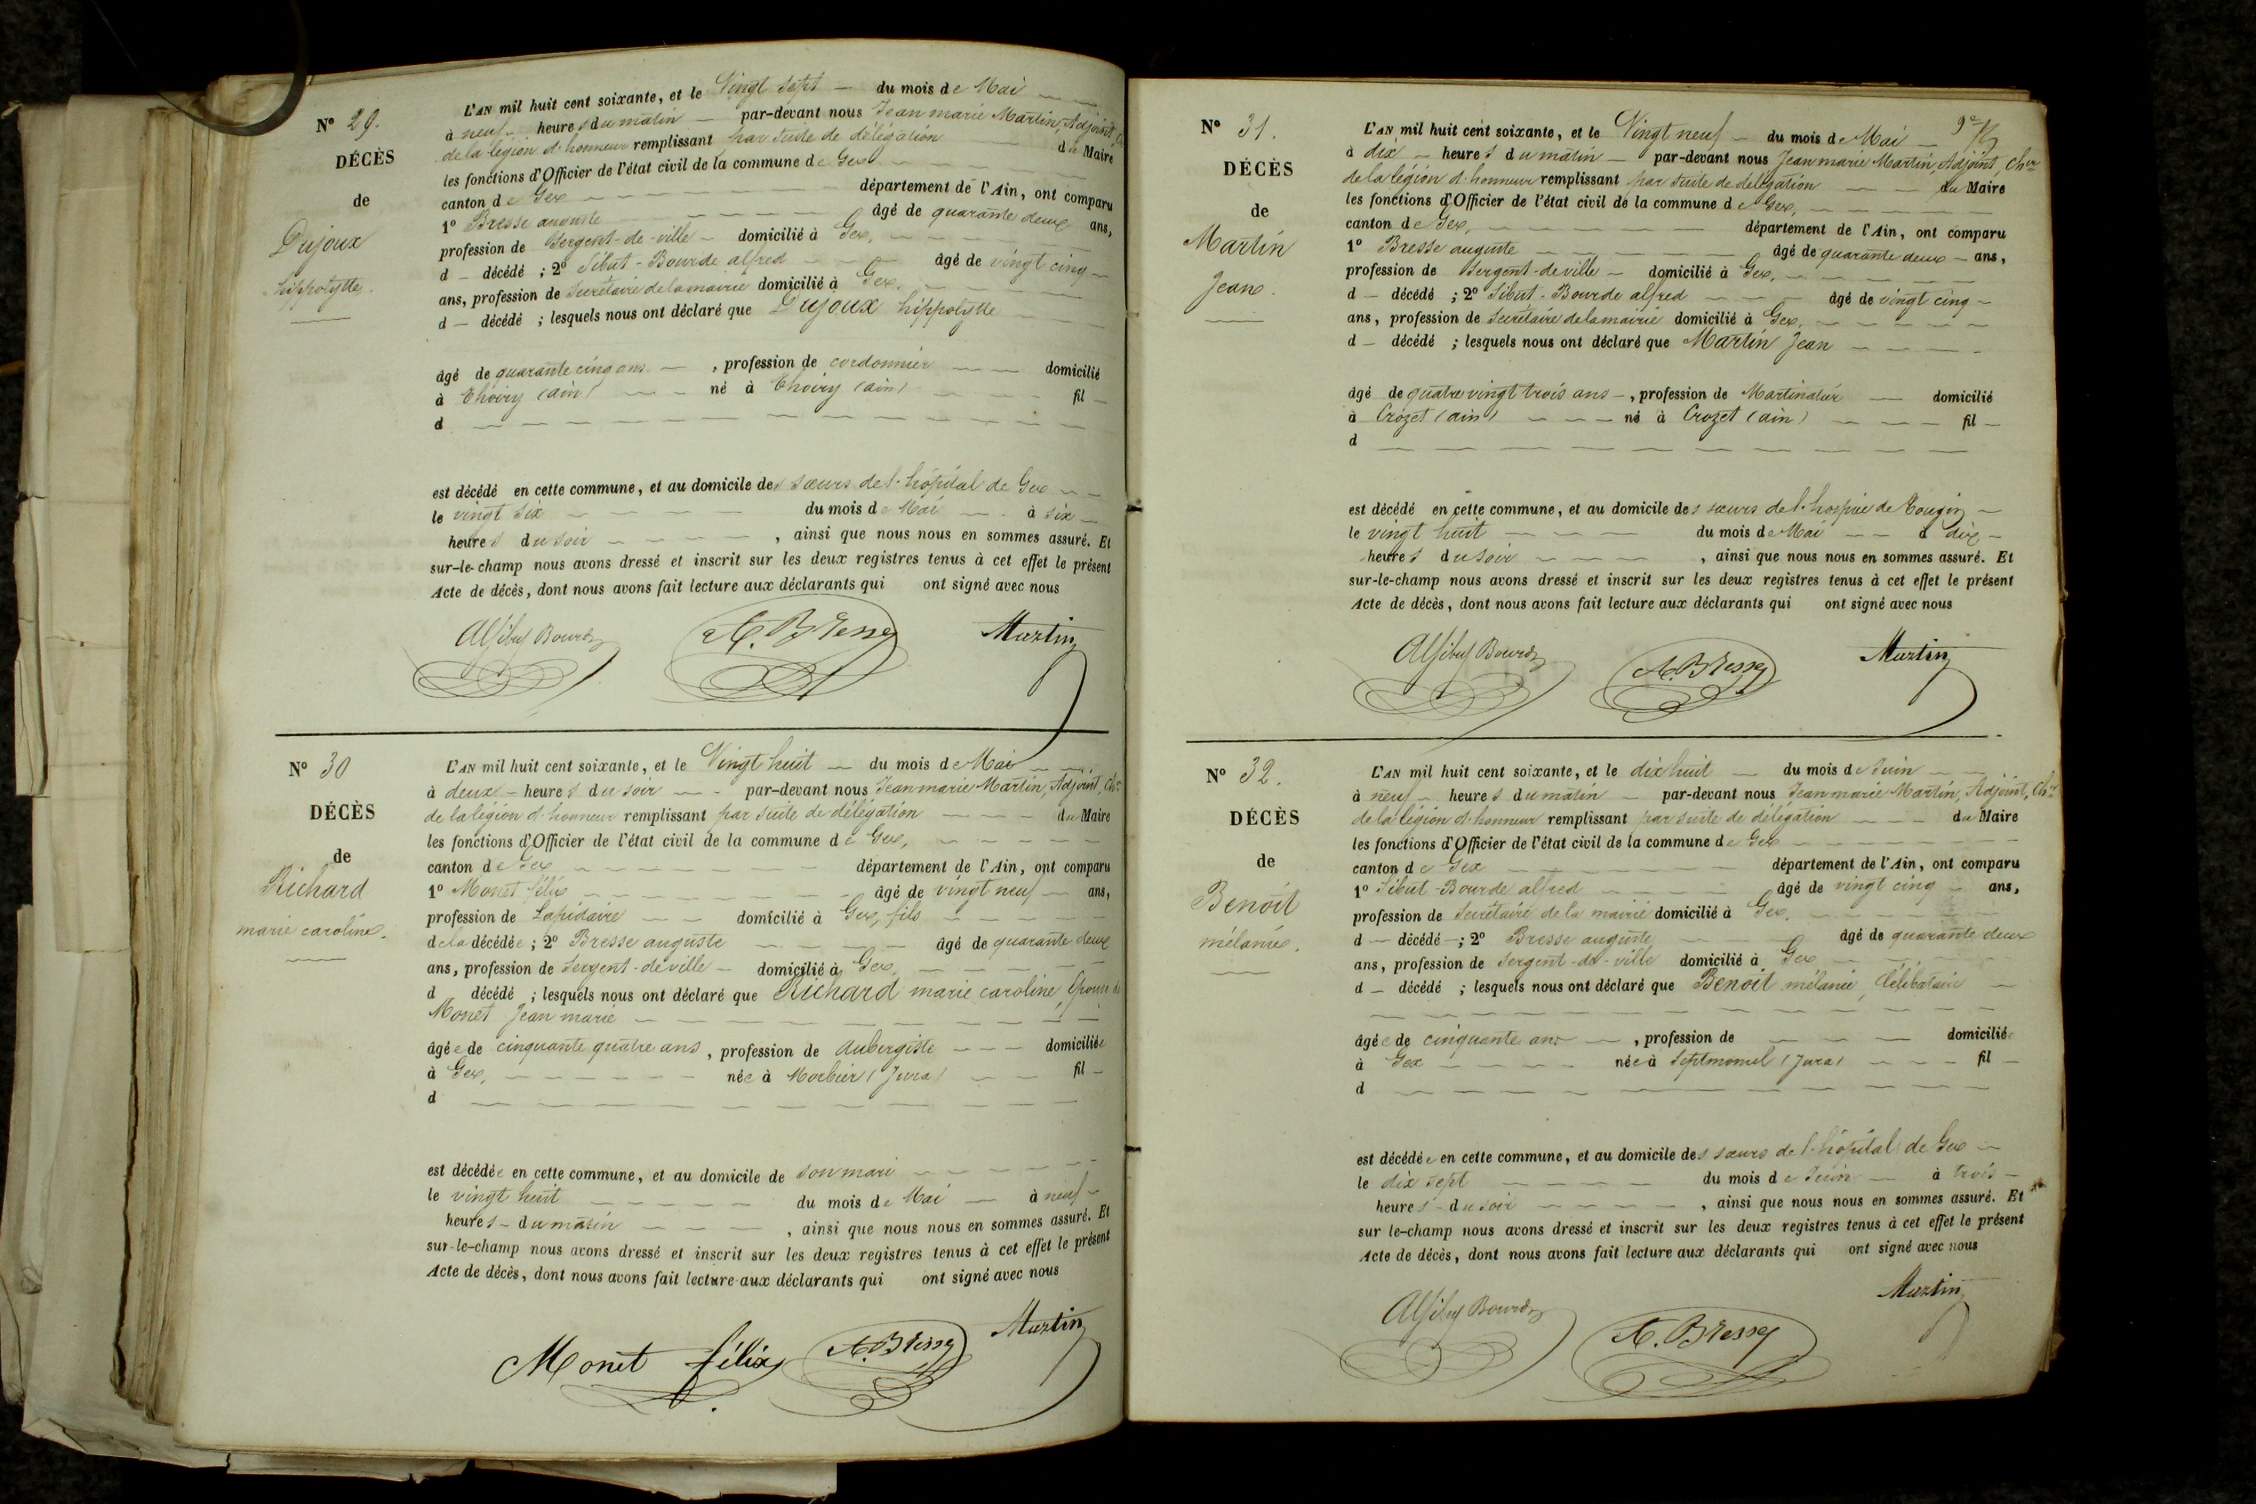 N° 29.
DÉCÈS
de
Dujoux
hippolytte.
L'AN mil huit cent soixante, et le Vingt sept — du mois de Mai
à neuf heures du matin — par-devant nous Jean marie Martin, Adjoint,
de la légion d'honneur remplissant par suite de délégation du Maire
les fonctions d'Officier de l'état civil de la commune de Gex
canton de Gex département de l'Ain, ont comparu
1° Bresse auguste âgé de quarante deux ans,
profession de Sergent-de-ville — domicilié à Gex,
d — décédé ; 2° Sibut-Bourde alfred âgé de vingt cinq —
ans, profession de Secrétaire de la mairie domicilié à Gex.
d — décédé ; lesquels nous ont déclaré que Dujoux hippolytte
âgé de quarante cinq ans — , profession de cordonnier domicilié
à Thoiry (ain) né à Thoiry (ain) fil —
d
est décédé en cette commune, et au domicile des sœurs de l'hôpital de Gex
le vingt six du mois de Mai à six
heures du soir , ainsi que nous nous en sommes assuré. Et
sur-le-champ nous avons dressé et inscrit sur les deux registres tenus à cet effet le présent
Acte de décès, dont nous avons fait lecture aux déclarants qui ont signé avec nous
A Sibut Bourde A. Bresse Martin
N° 30
DÉCÈS
de
Richard
marie caroline.
L'AN mil huit cent soixante, et le Vingt huit — du mois de Mai
à deux — heures du soir — par-devant nous Jean marie Martin, Adjoint, Cher
de la légion d'honneur remplissant par suite de délégation du Maire
les fonctions d'Officier de l'état civil de la commune de Gex,
canton de Gex département de l'Ain, ont comparu
1° Monet félix âgé de vingt neuf — ans,
profession de Lapidaire domicilié à Gex, fils
de la décédée ; 2° Bresse auguste âgé de quarante deux
ans, profession de Sergent-de ville — domicilié à Gex
d décédé ; lesquels nous ont déclaré que Richard marie caroline, Epouse de
Monet Jean marie
âgée de cinquante quatre ans , profession de Aubergiste domiciliée
à Gex, née à Morbier (Jura) fil —
d
est décédée en cette commune, et au domicile de son mari
le vingt huit du mois de Mai — à neuf —
heures — du matin , ainsi que nous nous en sommes assuré. Et
sur-le-champ nous avons dressé et inscrit sur les deux registres tenus à cet effet le présent
Acte de décès, dont nous avons fait lecture aux déclarants qui ont signé avec nous
Monet félix A. Bresse Martin
N° 31.
DÉCÈS
de
Martin
Jean.
L'AN mil huit cent soixante, et le Vingt neuf — du mois de Mai —
à dix — heures du matin — par-devant nous Jean marie Martin, Adjoint, Cher
de la légion d'honneur remplissant par suite de délégation du Maire
les fonctions d'Officier de l'état civil de la commune de Gex,
canton de Gex, département de l'Ain, ont comparu
1° Bresse auguste âgé de quarante deux — ans,
profession de Sergent-de ville — domicilié à Gex,
d — décédé ; 2° Sibut-Bourde alfred âgé de vingt cinq —
ans, profession de Secrétaire de la mairie domicilié à Gex,
d — décédé ; lesquels nous ont déclaré que Martin Jean
âgé de quatre vingt trois ans —, profession de domicilié
à Crozet (ain) né à Crozet (ain) fil —
d
est décédé en cette commune, et au domicile des sœurs de l'hospice de Tougin —
le vingt huit du mois de Mai — à dix —
heures du soir , ainsi que nous nous en sommes assuré. Et
sur-le-champ nous avons dressé et inscrit sur les deux registres tenus à cet effet le présent
Acte de décès, dont nous avons fait lecture aux déclarants qui ont signé avec nous
A Sibut Bourde A. Bresse Martin
N° 32.
DÉCÈS
de
Benoit
mélanie.
L'AN mil huit cent soixante, et le dix huit — du mois de Juin
à neuf — heures du matin — par-devant nous Jean marie Martin, Adjoint, Cher
de la légion d'honneur remplissant par suite de délégation du Maire
les fonctions d'Officier de l'état civil de la commune de Gex
canton de Gex département de l'Ain, ont comparu
1° Sibut-Bourde alfred âgé de vingt cinq — ans,
profession de Secrétaire de la mairie domicilié à Gex,
d — décédé —; 2° Bresse auguste âgé de quarante deux
ans, profession de Sergent-de-ville domicilié à Gex
d — décédé ; lesquels nous ont déclaré que Benoit mélanie, Célibataire
âgée de cinquante ans — , profession de domiciliée
à Gex née à Septmoncel (Jura) fil —
d
est décédée en cette commune, et au domicile des sœurs de l'hôpital de Gex —
le dix sept du mois de Juin — à trois —
heures du soir , ainsi que nous nous en sommes assuré. Et
sur le-champ nous avons dressé et inscrit sur les deux registres tenus à cet effet le présent
Acte de décès, dont nous avons fait lecture aux déclarants qui ont signé avec nous
A Sibut Bourde A. Bresse Martin